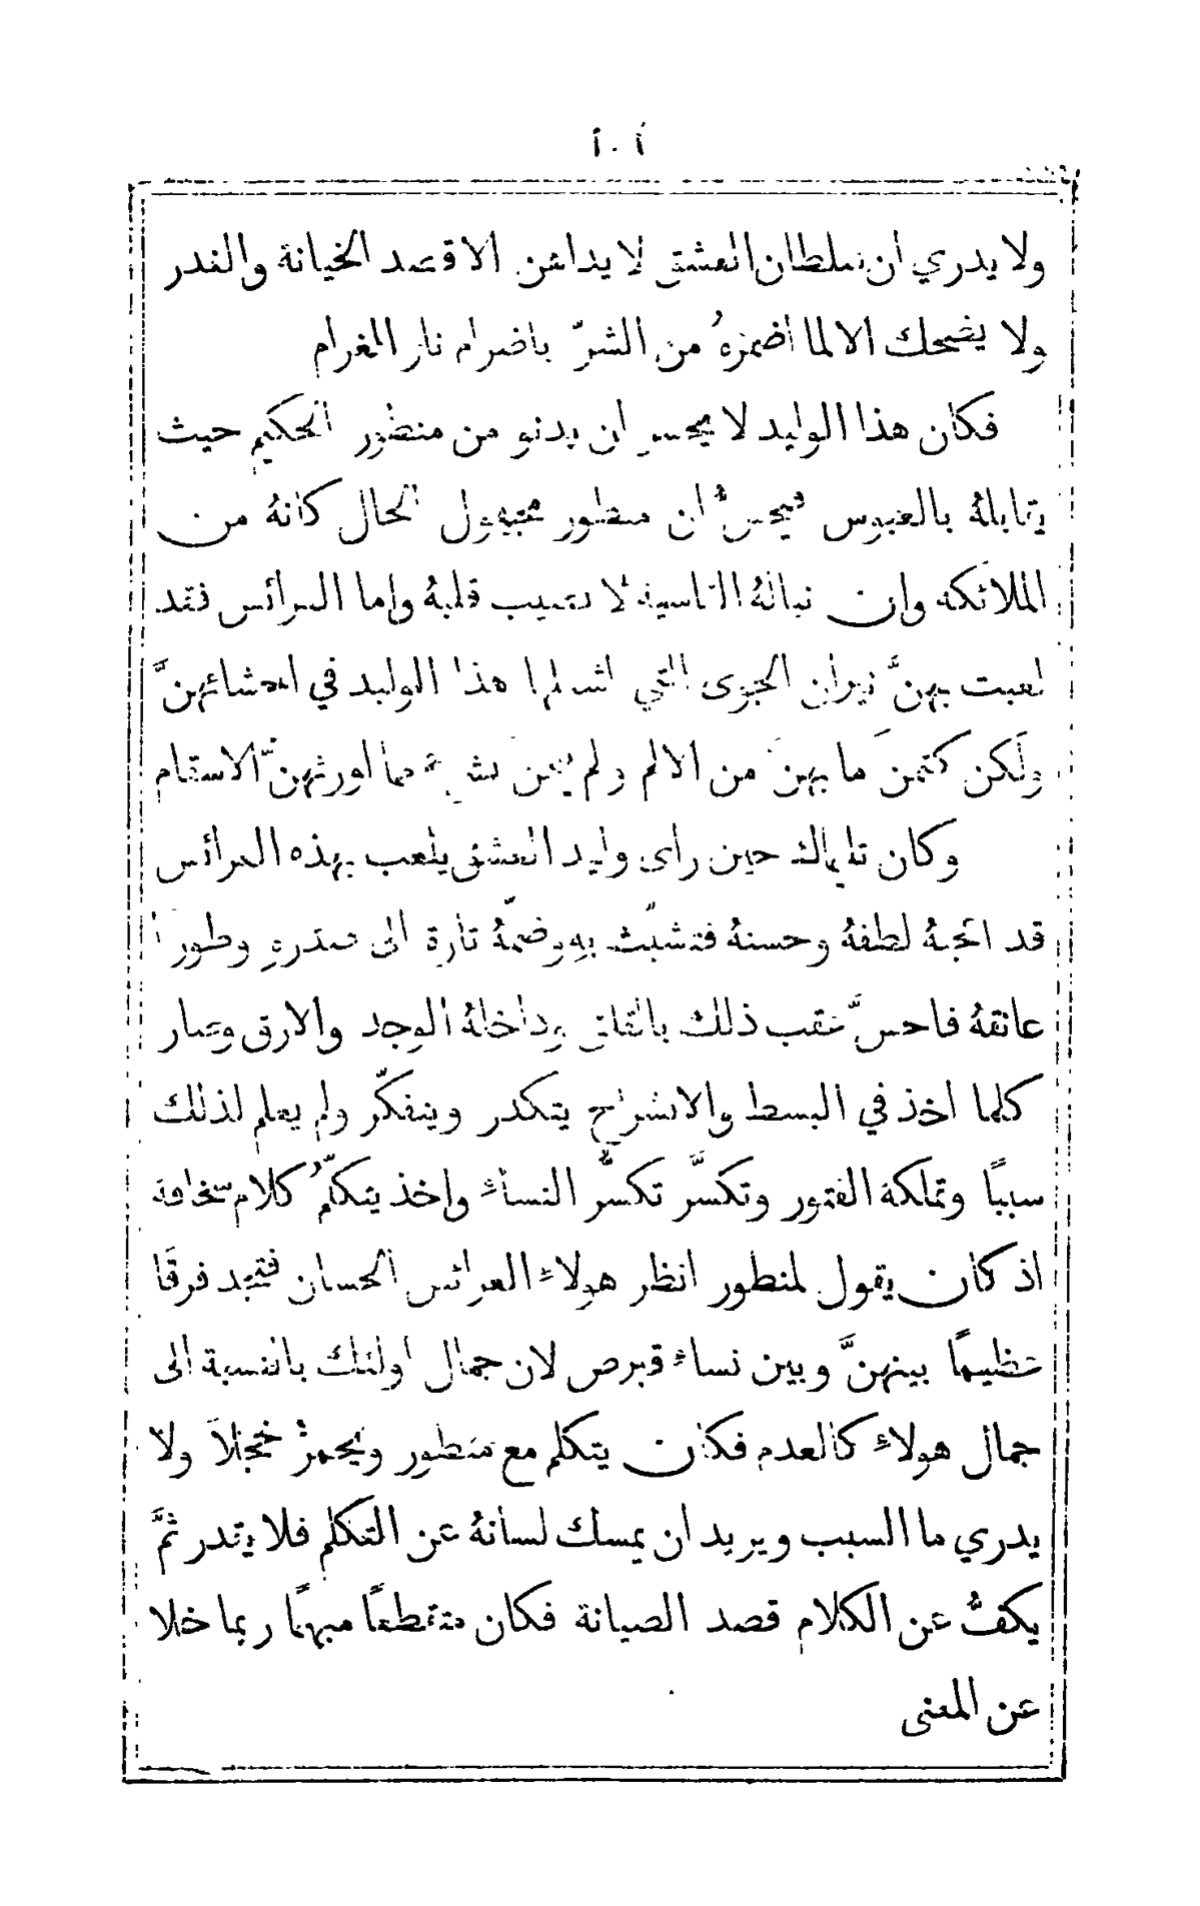 ١٠١
ولا يدري ان سلطان العشق لا يداعن الا قصد الخيانة والغدر
ولا يضحك الا لما اضمرهُ من الشرّ باضرام نار الغرام
فكان هذا الوليد لا يجسر ان يدنو من منطور الحكيم حيث
يقابلهُ بالعبوس فيحسُّ ان منطور مجهول الحال كانهُ من
الملائكه وان نبالهُ القاسية لا تصيب قلبهُ واما العرائس فقد
لعبت بهنَّ نيران الجوى التي اشعلها هذا الوليد في احشائهنَّ
ولكن كتمنَ ما بهنَّ من الالم ولم يبحن بشيءٍ مما اورثهنَّ الاسقام
وكان تليماك حين راى وليد العشق يلعب بهذه العرائس
قد اعجبهُ لطفهُ وحسنهُ فتشبّث بهِ وضمّهُ تارة الى صدرهِ وطورًا
عانقهُ فاحسَّ عقب ذلك بالقلق وداخلهُ الوجد والارق وصار
كلما اخذ في البسط والانشراح يتكدر ويتفكّر ولم يعلم لذلك
سببًا وتملكه الفتور وتكسَّر تكسُّر النساءِ واخذ يتكلّمُ كلام سخافة
اذ كان يقول لمنطور انظر هولاءِ العرائس الحسان فتجد فرقًا
عظيمًا بينهنَّ وبين نساءِ قبرص لان جمال اولئك بالنسبة الى
جمال هولاءِ كالعدم فكان يتكلم مع منطور ويحمرُّ خجلاً ولا
يدري ما السبب ويريد ان يمسك لسانهُ عن التكلم فلا يقدر ثمَّ
يكفُّ عن الكلام قصد الصيانة فكان متقطعًا مبهمًا ربما خلا
عن المعنى